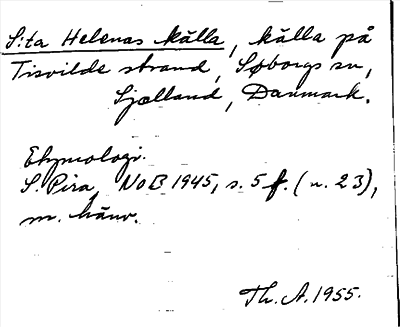 S:ta Helenas källa, källa på
Tisvilde strand, Søborgs sn,
Sjælland, Danmark.
Etymologi.
S. Pira, NoB 1945, s. 5 f. (n. 23),
m. hänv.
Th. A. 1955.